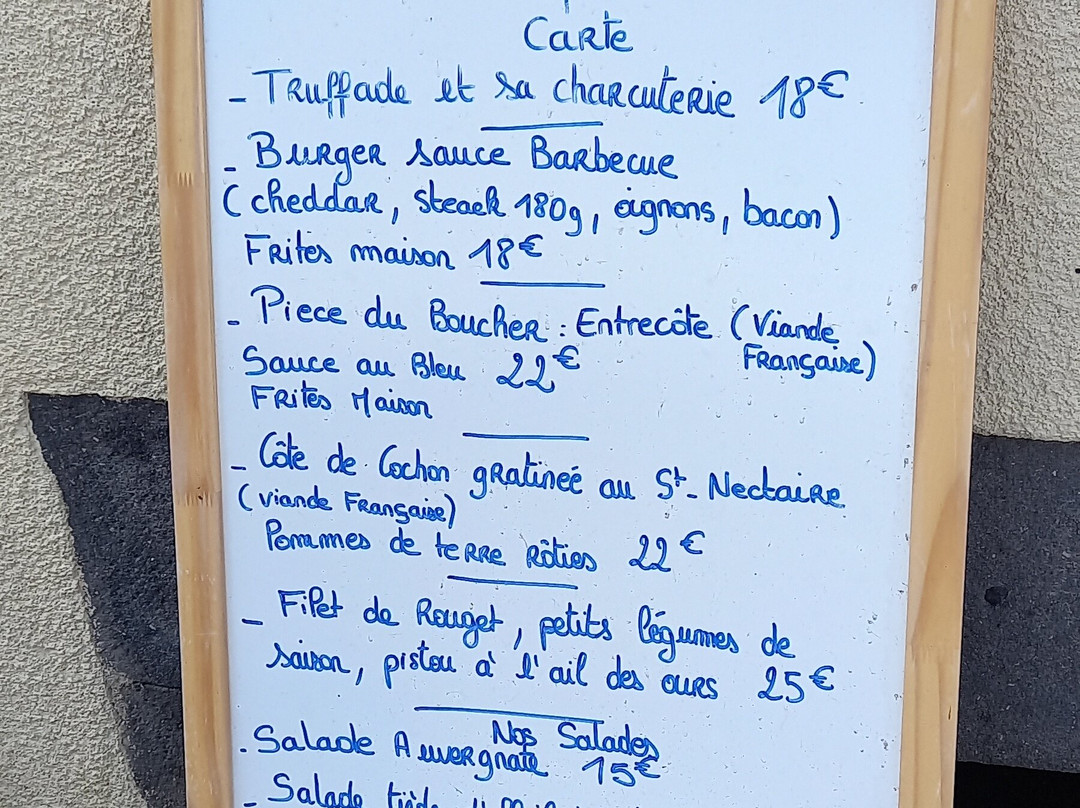 Carte
- Truffade et sa charcuterie 18€
- Burger sauce Barbecue
(cheddar, steack 180g, oignons, bacon)
Frites maison 18€
- Piece du Boucher : Entrecôte (Viande
Française)
Sauce au Bleu 22€
Frites Maison
- Côte de Cochon gratineé au St-Nectaire
(viande Française)
Pommes de terre rôties 22€
- Filet de Rouget, petits légumes de
saison, pistou à l'ail des ours 25€
Nos Salades
. Salade Auvergnate 15€
- Salade